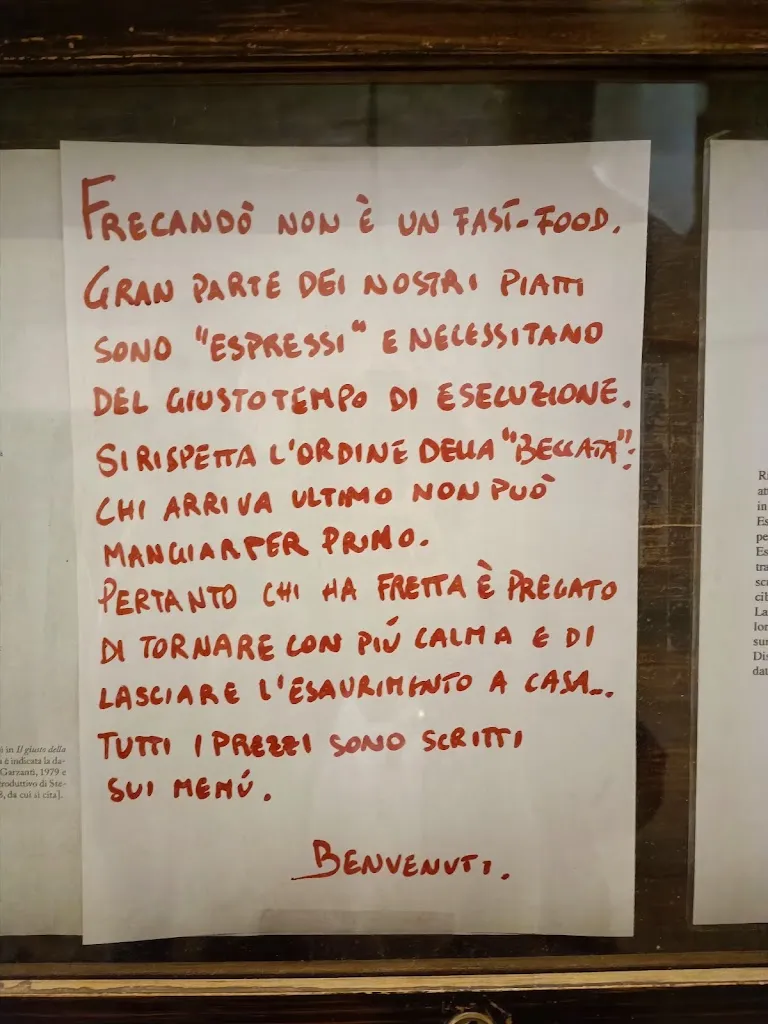 FRECANDÒ NON È UN FAST-FOOD.
GRAN PARTE DEI NOSTRI PIATTI
SONO "ESPRESSI" E NECESSITANO
DEL GIUSTO TEMPO DI ESECUZIONE.
SI RISPETTA L'ORDINE DELLA "BECCATA":
CHI ARRIVA ULTIMO NON PUÒ
MANGIAR PER PRIMO.
PERTANTO CHI HA FRETTA È PREGATO
DI TORNARE CON PIÚ CALMA E DI
LASCIARE L'ESAURIMENTO A CASA...
TUTTI I PREZZI SONO SCRITTI
SUI MENÚ.
BENVENUTI.
in Il giusto della
è indicata la da-
Garzanti, 1979 e
troduttivo di Ste-
, da cui si cita].